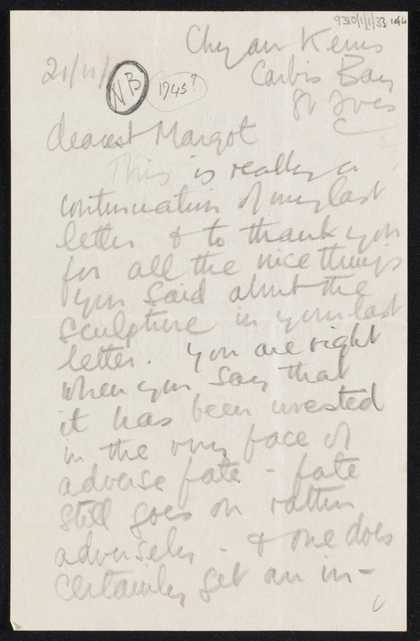 9310/1/1/33 1 of 4
Chy an Kerris
Carbis Bay
St Ives
C
21/11/
NB
1943?
dearest Margot
This is really a
continuation of my last
letter & to thank you
for all the nice things
you said about the
sculpture in your last
letter. You are right
when you say that
it has been wrested
in the very face of
adverse fate - fate
still goes on rather
adversely - & one does
certainly get an in-